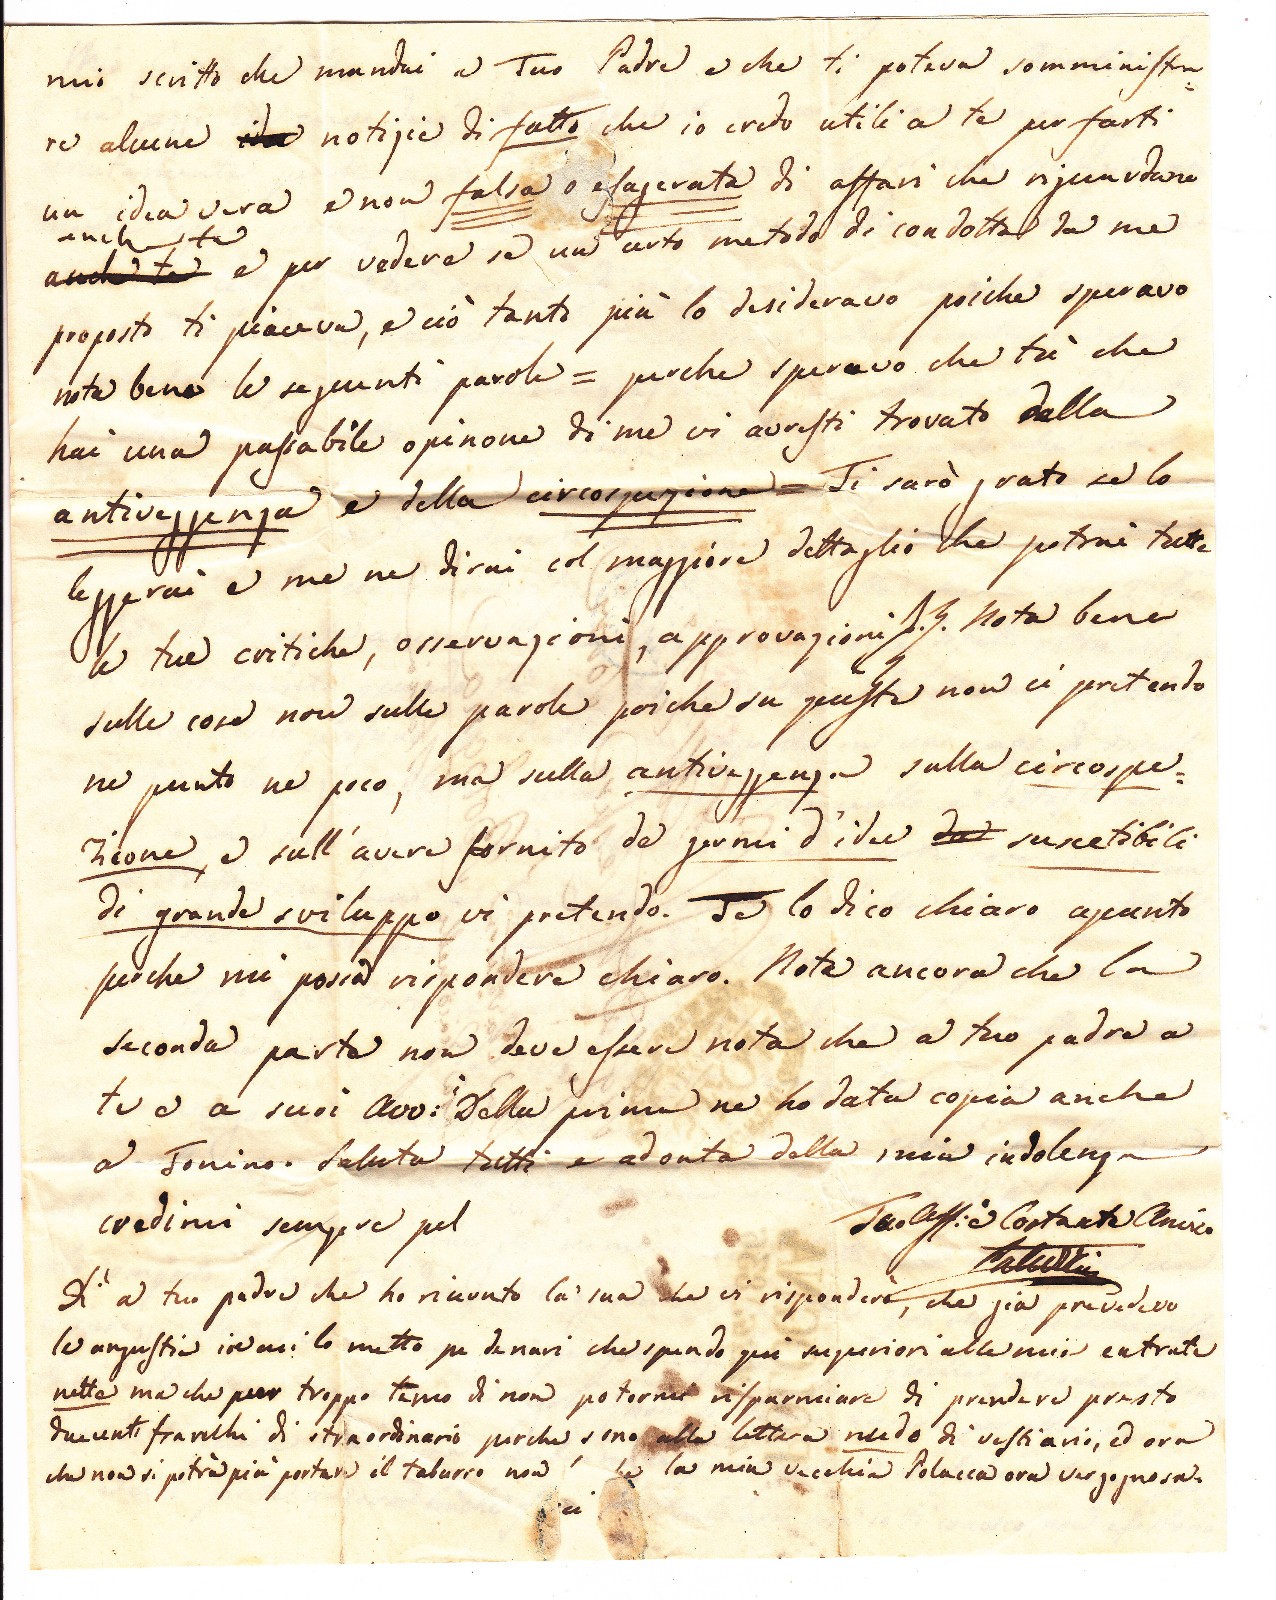 mio scritto che mandai a Tuo Padre e che ti poteva somministra=
re alcune notizie di fatto che io credo utili a te per farti
un idea vera e non falsa o esagerata di affari che riguardano
anche te
anche te e per vedere se un certo metodo di condotta da me
proposto ti piaceva, e ciò tanto più lo desideravo poiche speravo
nota bene le seguenti parole = perche speravo che tù che
hai una passabile opinone di me vi avresti trovato della
antiveggenza e della circospezione = Ti sarò grato se lo
leggerai e me ne dirai col maggiore dettaglio che potrai tutte
le tue critiche, osservazioni, approvazioni Nota bene
sulle cose non sulle parole poiche su queste non ci pretendo
ne punto ne poco, ma sulla antiveggenza sulla circospe=
zione, e sull'avere fornito de germi d'idee suscetibili
di grande sviluppo vi pretendo. Te lo dico chiaro apunto
perche mi possa rispondere chiaro. Nota ancora che la
seconda parte non deve essere nota che a tuo padre a
te e a suoi Avv:i Della prima ne ho data copia anche
a Tonino. Saluta tutti e adonta della mia indolenza
credimi sempre pel
Tuo Aff:e Costante Amico
Di a tuo padre che ho ricevuto la sua che vi risponderò, che gia prevedevo
le angustie in cui lo metto pe denari che spendo qui superiori alle mie entrate
nette ma che pur troppo temo di non potermi risparmiare di prendere presto
duecenti franchi di straordinario perche sono alla lettera nudo di vestiario, ed ora
che non si potrà più portare il tabarro non la mia vecchia Polacca ora vergognosa.